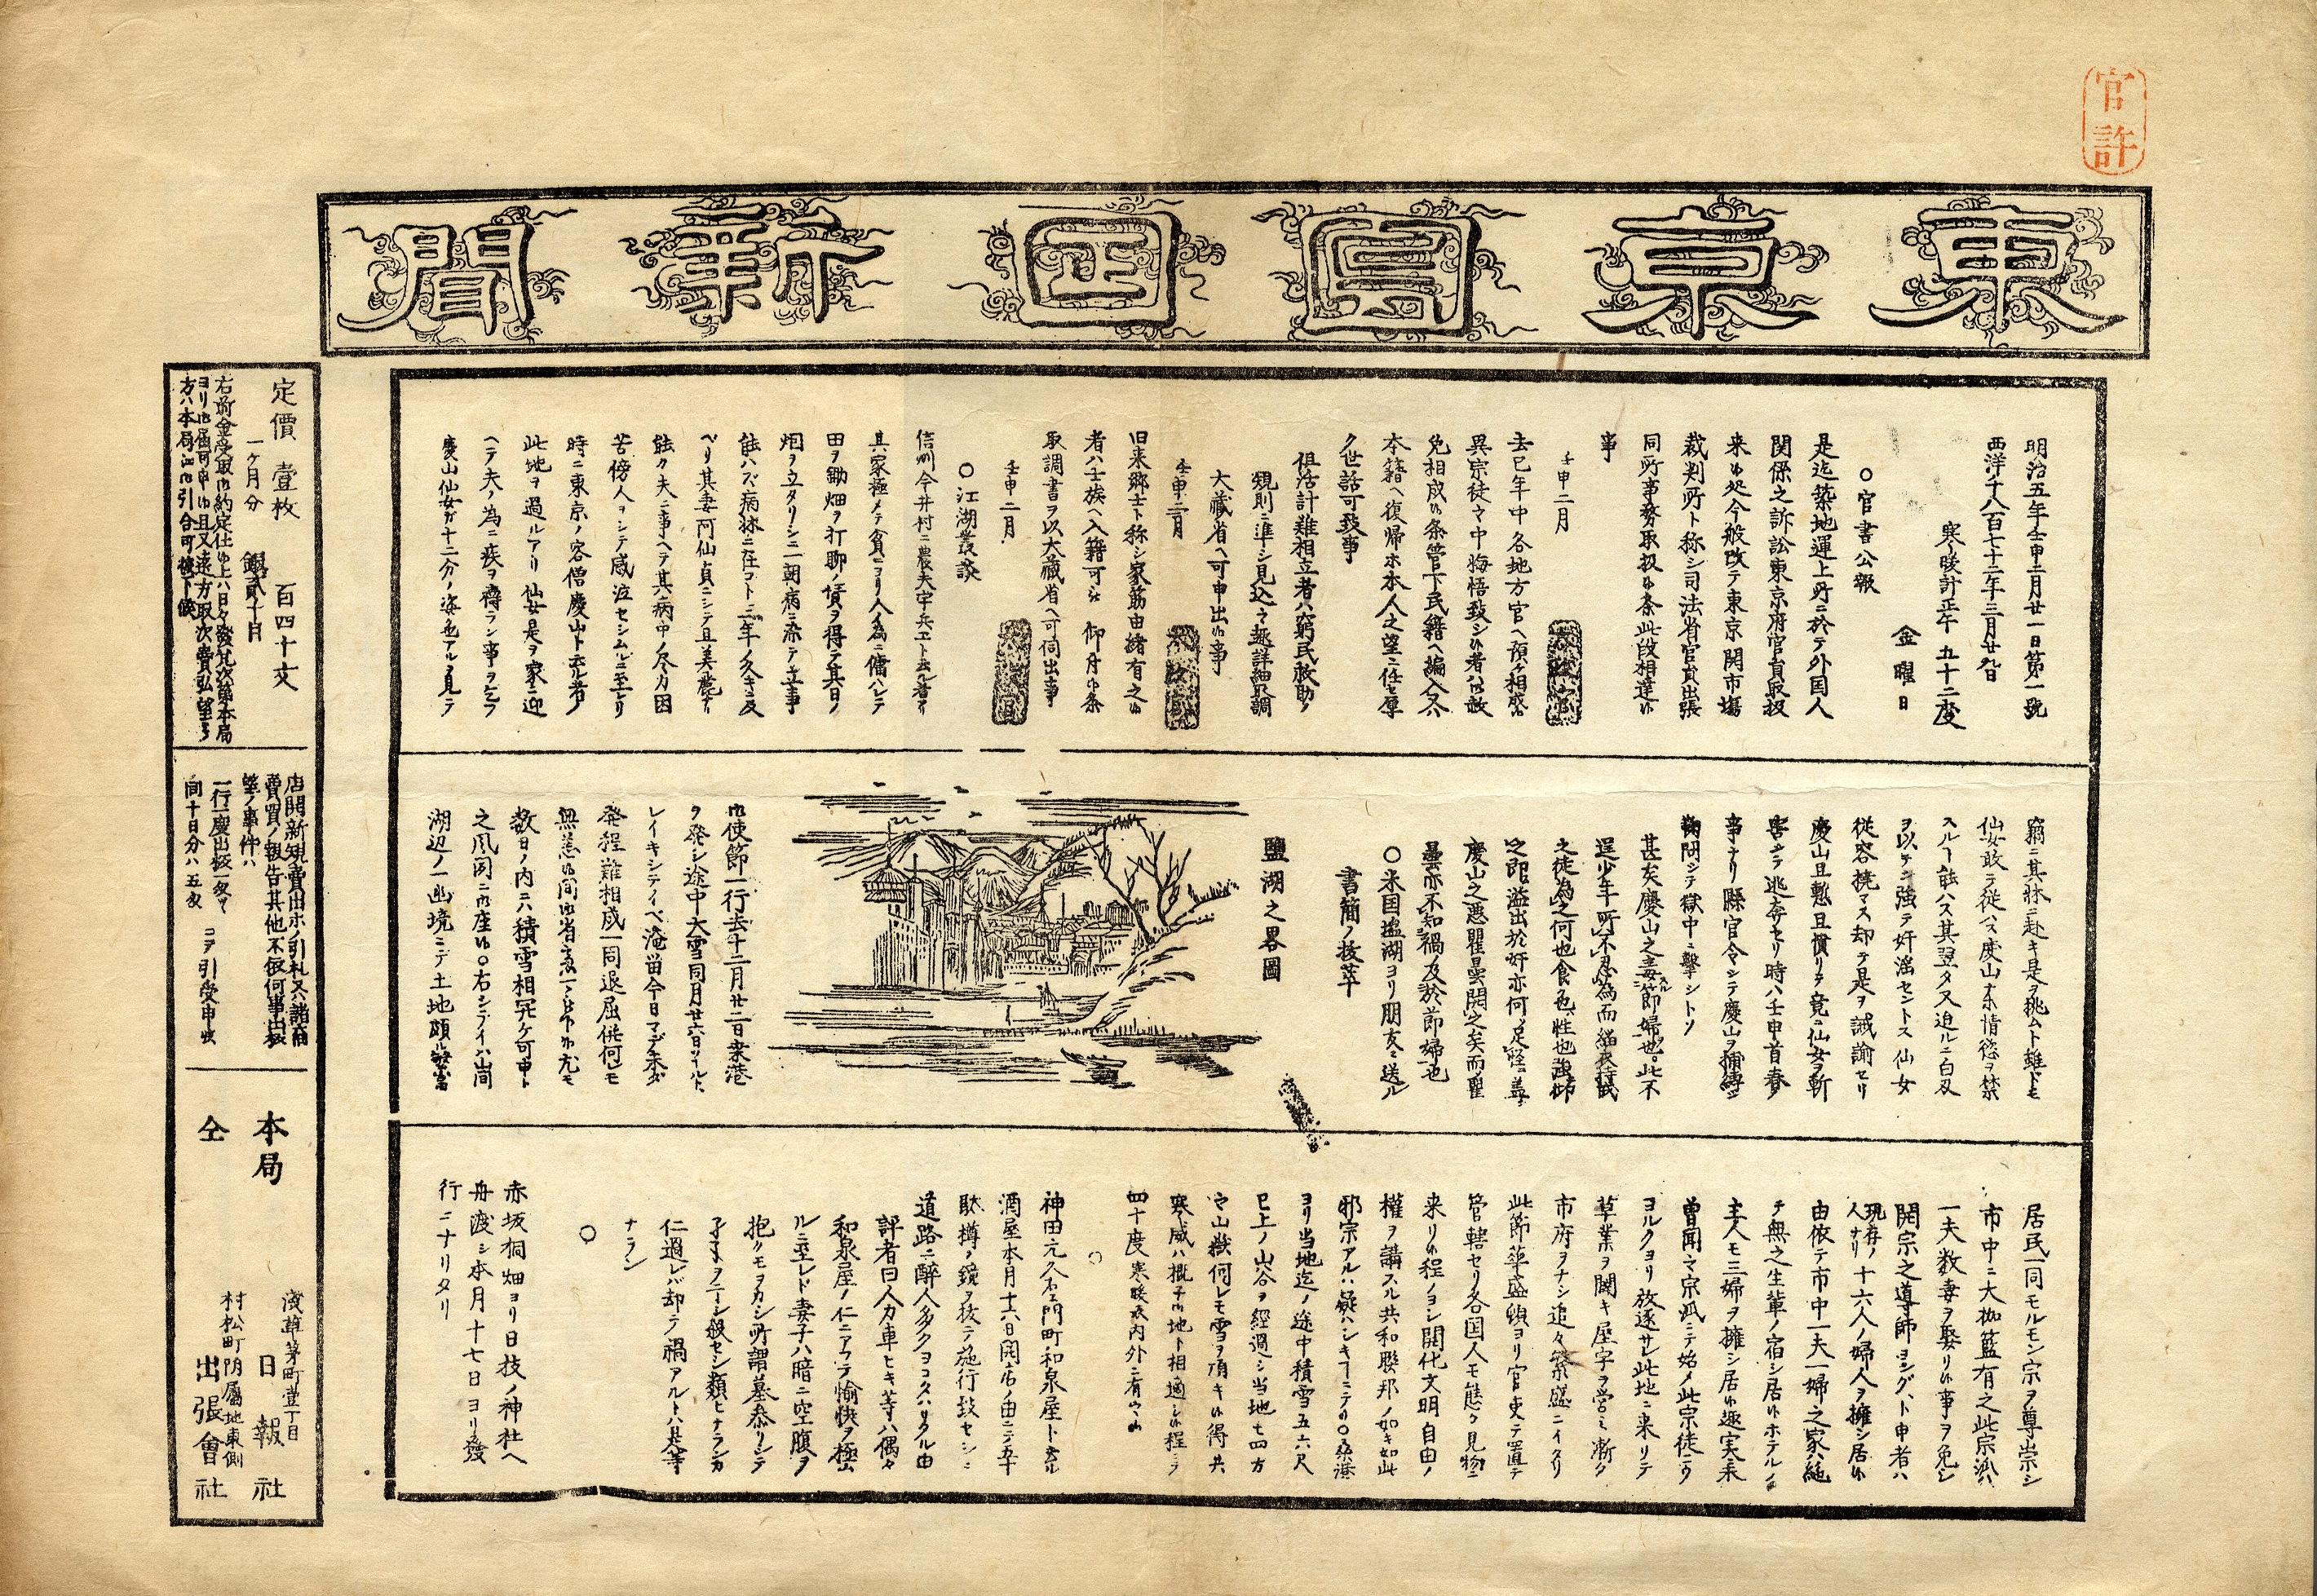 官許
東京日日新聞
明治五年壬申二月廿一日第一號
西洋千八百七十二年三月廿九日
寒暖計正午 五十二度
金曜日
○官書公報
是迄築地運上所ニ於テ外国人
関係之訴訟東京府官員取扱
来候処今般改テ東京開市場
裁判所ト称シ司法省官員出張
同所事務取扱候条此段相達候
事
壬申二月
去巳年中各地方官ヘ預ケ相成候
異宗徒之中悔悟致シ候者ハ被放
免相成候条管下民籍ヘ編入又ハ
本籍ヘ復帰ホ本人之望ニ任セ厚
ク世話可致事
但活計難相立者ハ窮民救助ノ
規則ニ準シ見込之趣詳細取調
大藏省ヘ可申出候事
壬申二月
旧来郷士ト称シ家筋由緒有之候
者ハ士族ヘ入籍可シ 仰付候条
取調書ヲ以大藏省ヘ可伺出事
壬申二月
○江湖叢談
信州今井村ニ農夫宇兵エト云ル者アリ
其家極メテ貧ニヨリ人ノ為ニ傭ハレテ
田ヲ鋤畑ヲ打聊ノ賃ヲ得テ其日ノ
烟ヲ立タリシニ一朝病ニ染テ立事
能ハズ病牀ニ在コト三年ノ久キニ及
ベリ其妻阿仙貞ニシテ且美麗ナリ
能ク夫ニ事ヘテ其病中ノ尽力困
苦傍人ヲシテ感泣セシムルニ至レリ
時ニ東京ノ客僧慶山ト云ル者ノ
此地ヲ過ルアリ仙女是ヲ家ニ迎
ヘテ夫ノ為ニ疾ヲ祷ラン事ヲ乞フ
慶山仙女ガ十二分ノ姿色アルヲ見テ
竊ニ其牀ニ赴キ是ヲ挑ムト雖ドモ
仙女敢テ従ハズ慶山ホ情慾ヲ禁
スルー能ハス其翌夕又迫ルニ白刃
ヲ以テシ強テ奸淫セントス仙女
従容撓マス却テ是ヲ誡諭セリ
慶山且慙且憤リテ竟ニ仙女ヲ斬
害シテ逃奔セリ時ハ壬申首春ノ
事ナリ縣官令シテ慶山ヲ捕縛シ
鞫問シテ獄中ニ撃シトソ
甚矣慶山之毒節婦也此不
逞少年所不忍為而緇衣持戒
之徒為之何也食色性也強抑
之即溢出於奸亦何足怪蓋
慶山之悪瞿曇開之矣而瞿
曇亦不知禍ノ及於節婦也
○米国塩湖ヨリ朋友ニ送ル
書簡ノ抜萃
鹽湖之畧圖
御使節一行去十二月廿二日桒港
ヲ発シ途中大雪同月廿六日ソールト
レイキシテイヘ淹留今日マデ未ダ
発程難相成一同退屈併何レモ
無恙候間御省念可被下候尤モ
数日ノ内ニハ積雪相開ケ可申ト
之風聞ニ御座候○右シテイハ山間
湖辺ノ一幽境ニテ土地頗ル豊富
居民一同モルモン宗ヲ尊崇シ
市中ニ大伽藍有之此宗派ハ
一夫数妻ヲ娶リ候事ヲ免シ
開宗之導師ヨングト申者ハ
現存ノ人ナリ十六人ノ婦人ヲ擁シ居候
由依テ市中一夫一婦之家ハ絶
テ無之生輩ノ宿シ居候ホテルノ
主人モ三婦ヲ擁シ居候趣実ニ未
曽聞之宗派ニテ始メ此宗徒ニウ
ヨルクヨリ放逐サレ此地ニ来リテ
草業ヲ開キ屋宇ヲ営ミ漸ク
市府ヲナシ追々繁盛ニイタリ
此節華盛頓ヨリ官吏テ置テ
管轄セリ各国人モ態々見物ニ
来リ候程ノヨシ開化文明自由ノ
權ヲ講スル共和聯邦ノ如キ如此
邪宗アルハ疑ハシキーニテ候○桒港
ヨリ当地迄ノ途中積雪五六尺
已上ノ山谷ヲ経過シ当地モ四方
之山嶽何レモ雪ヲ頂キ候得共
寒威ハ概子御地ト相適シ候程ニテ
四十度寒暖表内外ニ有之候
○
神田元久右エ門町和泉屋ト云ル
酒屋本月十六日開店ノ由ニテ五斗
駄樽ノ鏡ヲ抜テ施行致セシニ
道路ニ酔人多クヨコタハリタル由
評者曰人力車ヒキ等ハ偶々
和泉屋ノ仁ニアフテ愉快ヲ極ル
ルニ至レド妻子ハ暗ニ空腹ヲ
抱クモヲカシ所謂墓参リシテ
孑孑ヲニーシ般セシ類ヒナランカ
仁過レバ却テ禍アルトハ是等
ナラン
○
赤坂桐畑ヨリ日枝ノ神社ヘ
舟渡シ本月十七日ヨリ發
行ニナリタリ
定價 壹枚 百四十文
一ケ月分 銀貳十匁
右前金受取御約定仕候上ハ日々發兌次第本局
ヨリ御届可申候且又遠方取次賣弘望ミノ
方ハ本局江御引合可被下候
店開新規賣出ホノ引札又ハ諸商
賣買ノ報告其他不依何事出板
望ノ事件ハ
一行一度出板一匁ツヽ
間十日分ハ五匁 コテ引受申候
本局 淺草茅町壹丁目 日報社
仝 村松町附属地東側 出張會社